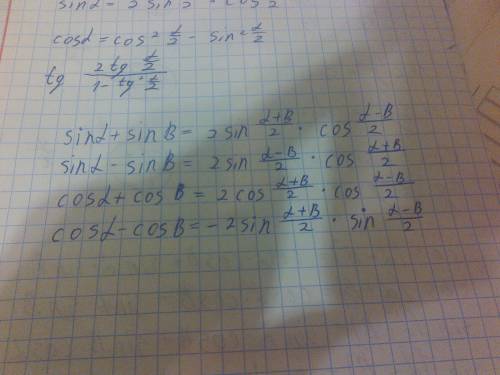 sin α = 2 sin α/2 · cos α/2
cos α = cos² α/2 - sin² α/2
tg (2 tg α/2)/(1 - tg² α/2)
sin α + sin B = 2 sin (α+B)/2 · cos (α-B)/2
sin α - sin B = 2 sin (α-B)/2 · cos (α+B)/2
cos α + cos B = 2 cos (α+B)/2 · cos (α-B)/2
cos α - cos B = -2 sin (α+B)/2 · sin (α-B)/2